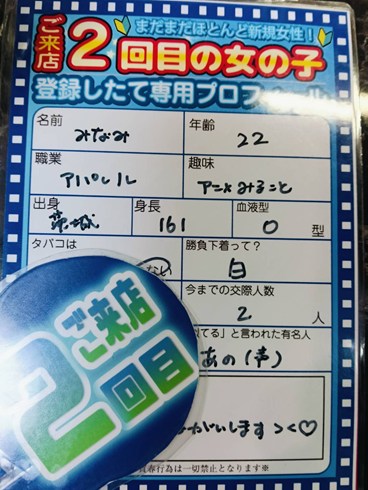 まだまだほとんど新規女性!!
ご来店2回目の女の子
登録したて専用プロフィール
名前 みなみ 年齢 22
職業 アパレル 趣味 アニメみること
出身 茨城 身長 161 血液型 O 型
タバコは ない 勝負下着って? 白
今までの交際人数 2 人
てる」と言われた有名人
あの(声)
がいします><♡
行為は一切禁止となります※
ご来店
2回目